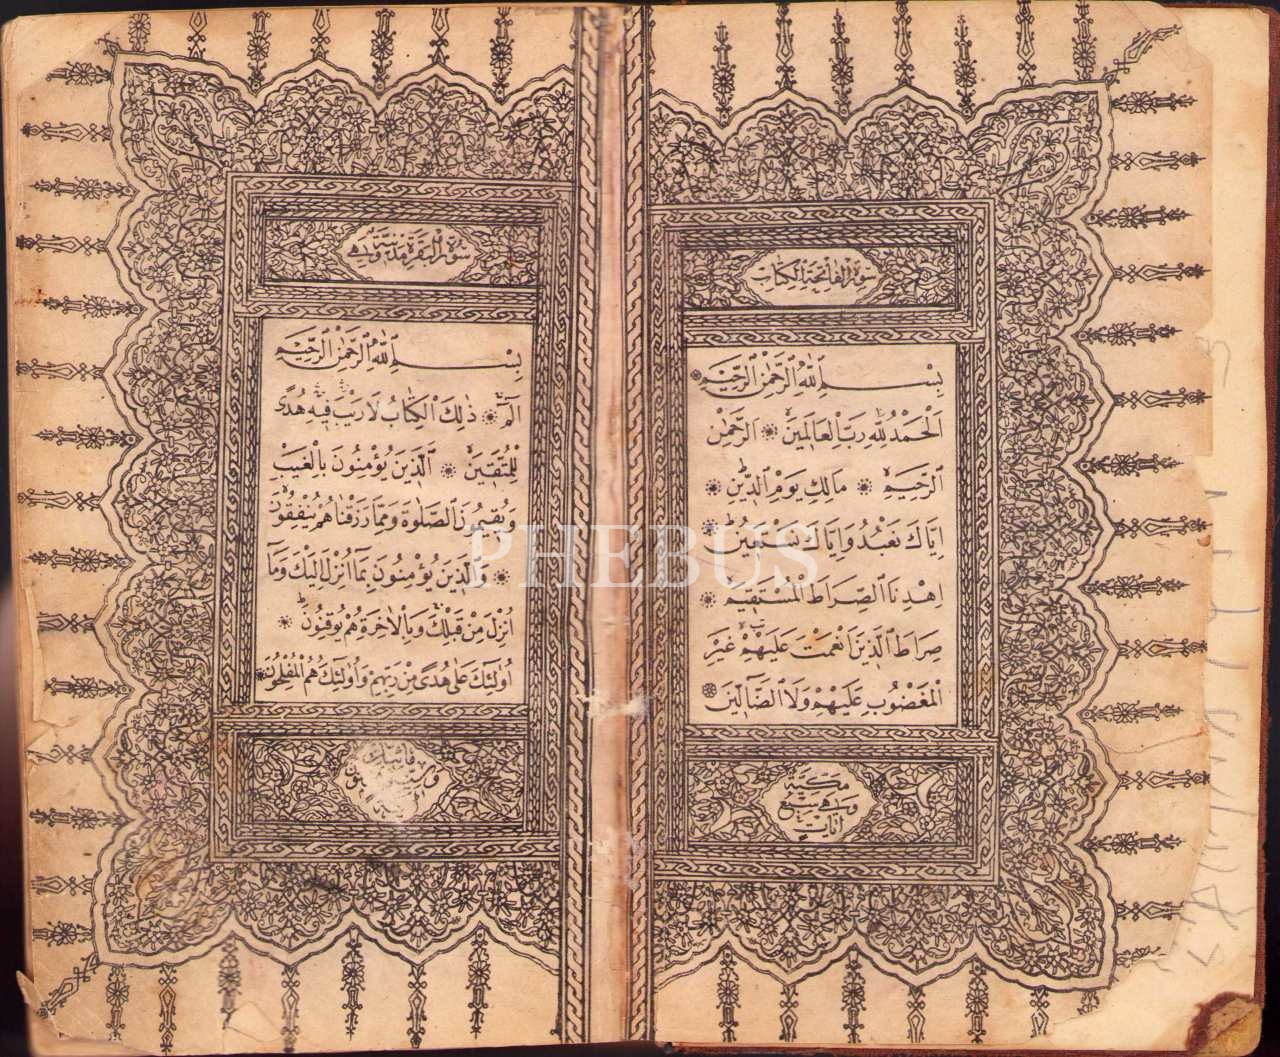 سورة الفاتحة الكتاب
بِسْمِ ٱللّٰهِ ٱلرَّحْمٰنِ ٱلرَّحِيمِ ۞
اَلْحَمْدُ لِلّٰهِ رَبِّ الْعَالَمِينَ ۞ اَلرَّحْمٰنِ
ٱلرَّحِيمِ ۞ مَالِكِ يَوْمِ ٱلدِّينِ ۞
اِيَّاكَ نَعْبُدُ وَاِيَّاكَ نَسْتَعِينُ ۞
اِهْدِنَا ٱلصِّرَاطَ الْمُسْتَقِيمَ ۞
صِرَاطَ ٱلَّذِينَ اَنْعَمْتَ عَلَيْهِمْ غَيْرِ
الْمَغْضُوبِ عَلَيْهِمْ وَلَا ٱلضَّٓالِّينَ ۞
مكية
وهي سبع
آيات
سورة البقرة مدنية وهي
بِسْمِ ٱللّٰهِ ٱلرَّحْمٰنِ ٱلرَّحِيمِ
الٓمٓ ۞ ذٰلِكَ الْكِتَابُ لَا رَيْبَ فِيهِ هُدًى
لِلْمُتَّقِينَ ۞ اَلَّذِينَ يُؤْمِنُونَ بِالْغَيْبِ
وَيُقِيمُونَ ٱلصَّلٰوةَ وَمِمَّا رَزَقْنَاهُمْ يُنْفِقُونَ
۞ وَٱلَّذِينَ يُؤْمِنُونَ بِمَٓا اُنْزِلَ اِلَيْكَ وَمَٓا
اُنْزِلَ مِنْ قَبْلِكَ وَبِالْاٰخِرَةِ هُمْ يُوقِنُونَ ۞
اُولٰٓئِكَ عَلٰى هُدًى مِنْ رَبِّهِمْ وَاُولٰٓئِكَ هُمُ الْمُفْلِحُونَ ۞
PHEBUS